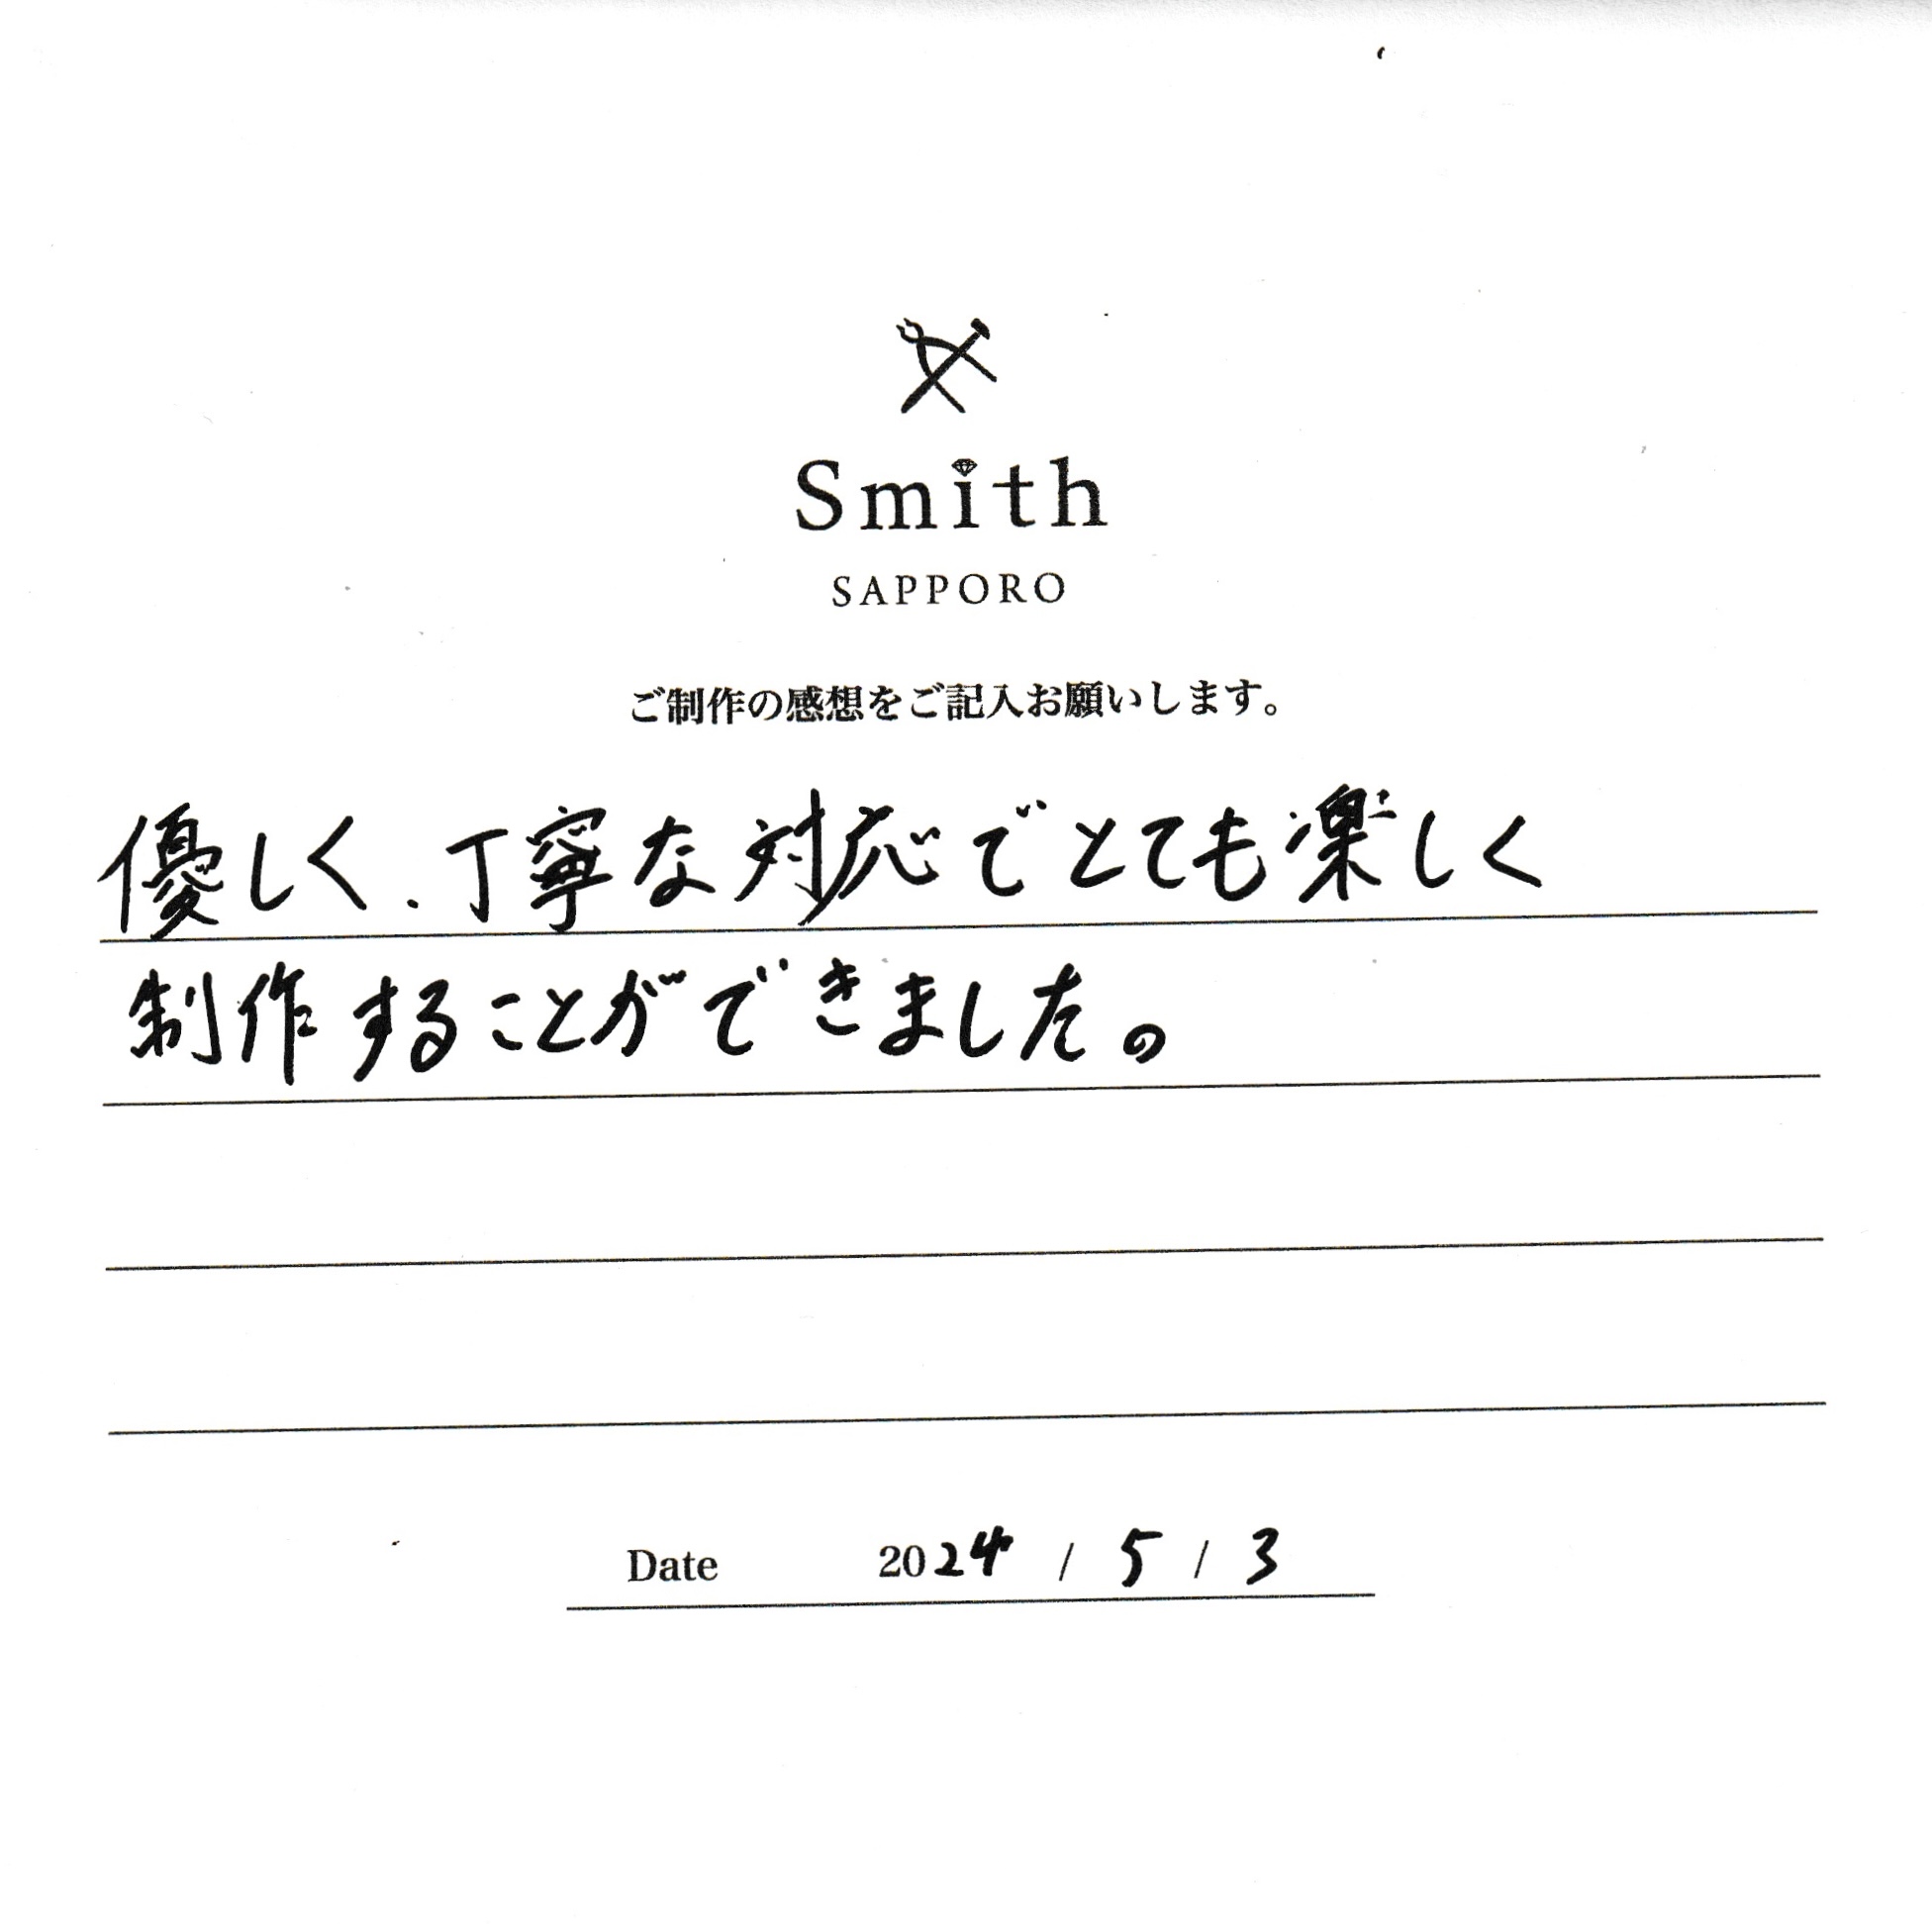 Smith
SAPPORO
ご制作の感想をご記入お願いします。
優しく、丁寧な対応でとても楽しく
制作することができました。
Date 2024 / 5 / 3